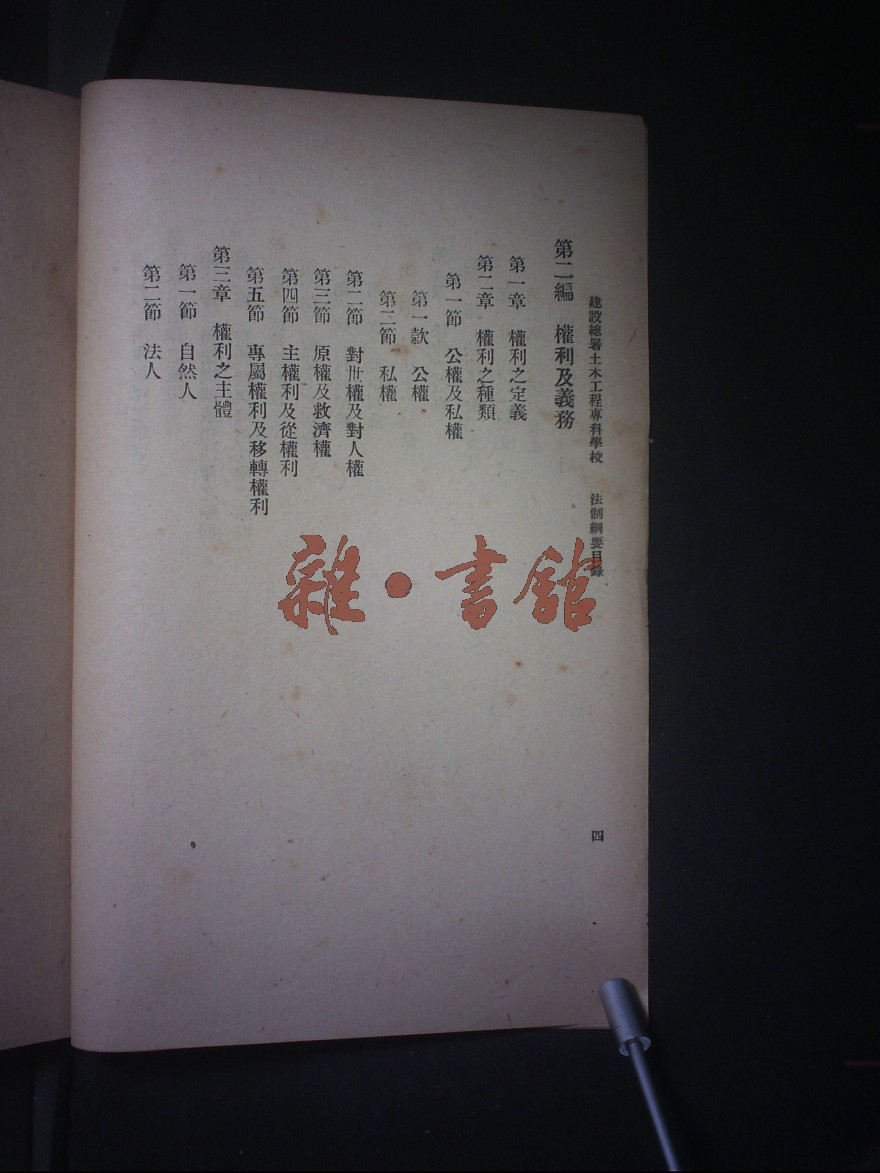 建設總署土木工程專科學校　法制綱要目錄
四
第二編　權利及義務
第一章　權利之定義
第二章　權利之種類
第一節　公權及私權
第一款　公權
第二節　私權
第二節　對世權及對人權
第三節　原權及救濟權
第四節　主權利及從權利
第五節　專屬權利及移轉權利
第三章　權利之主體
第一節　自然人
第二節　法人
雜·書館